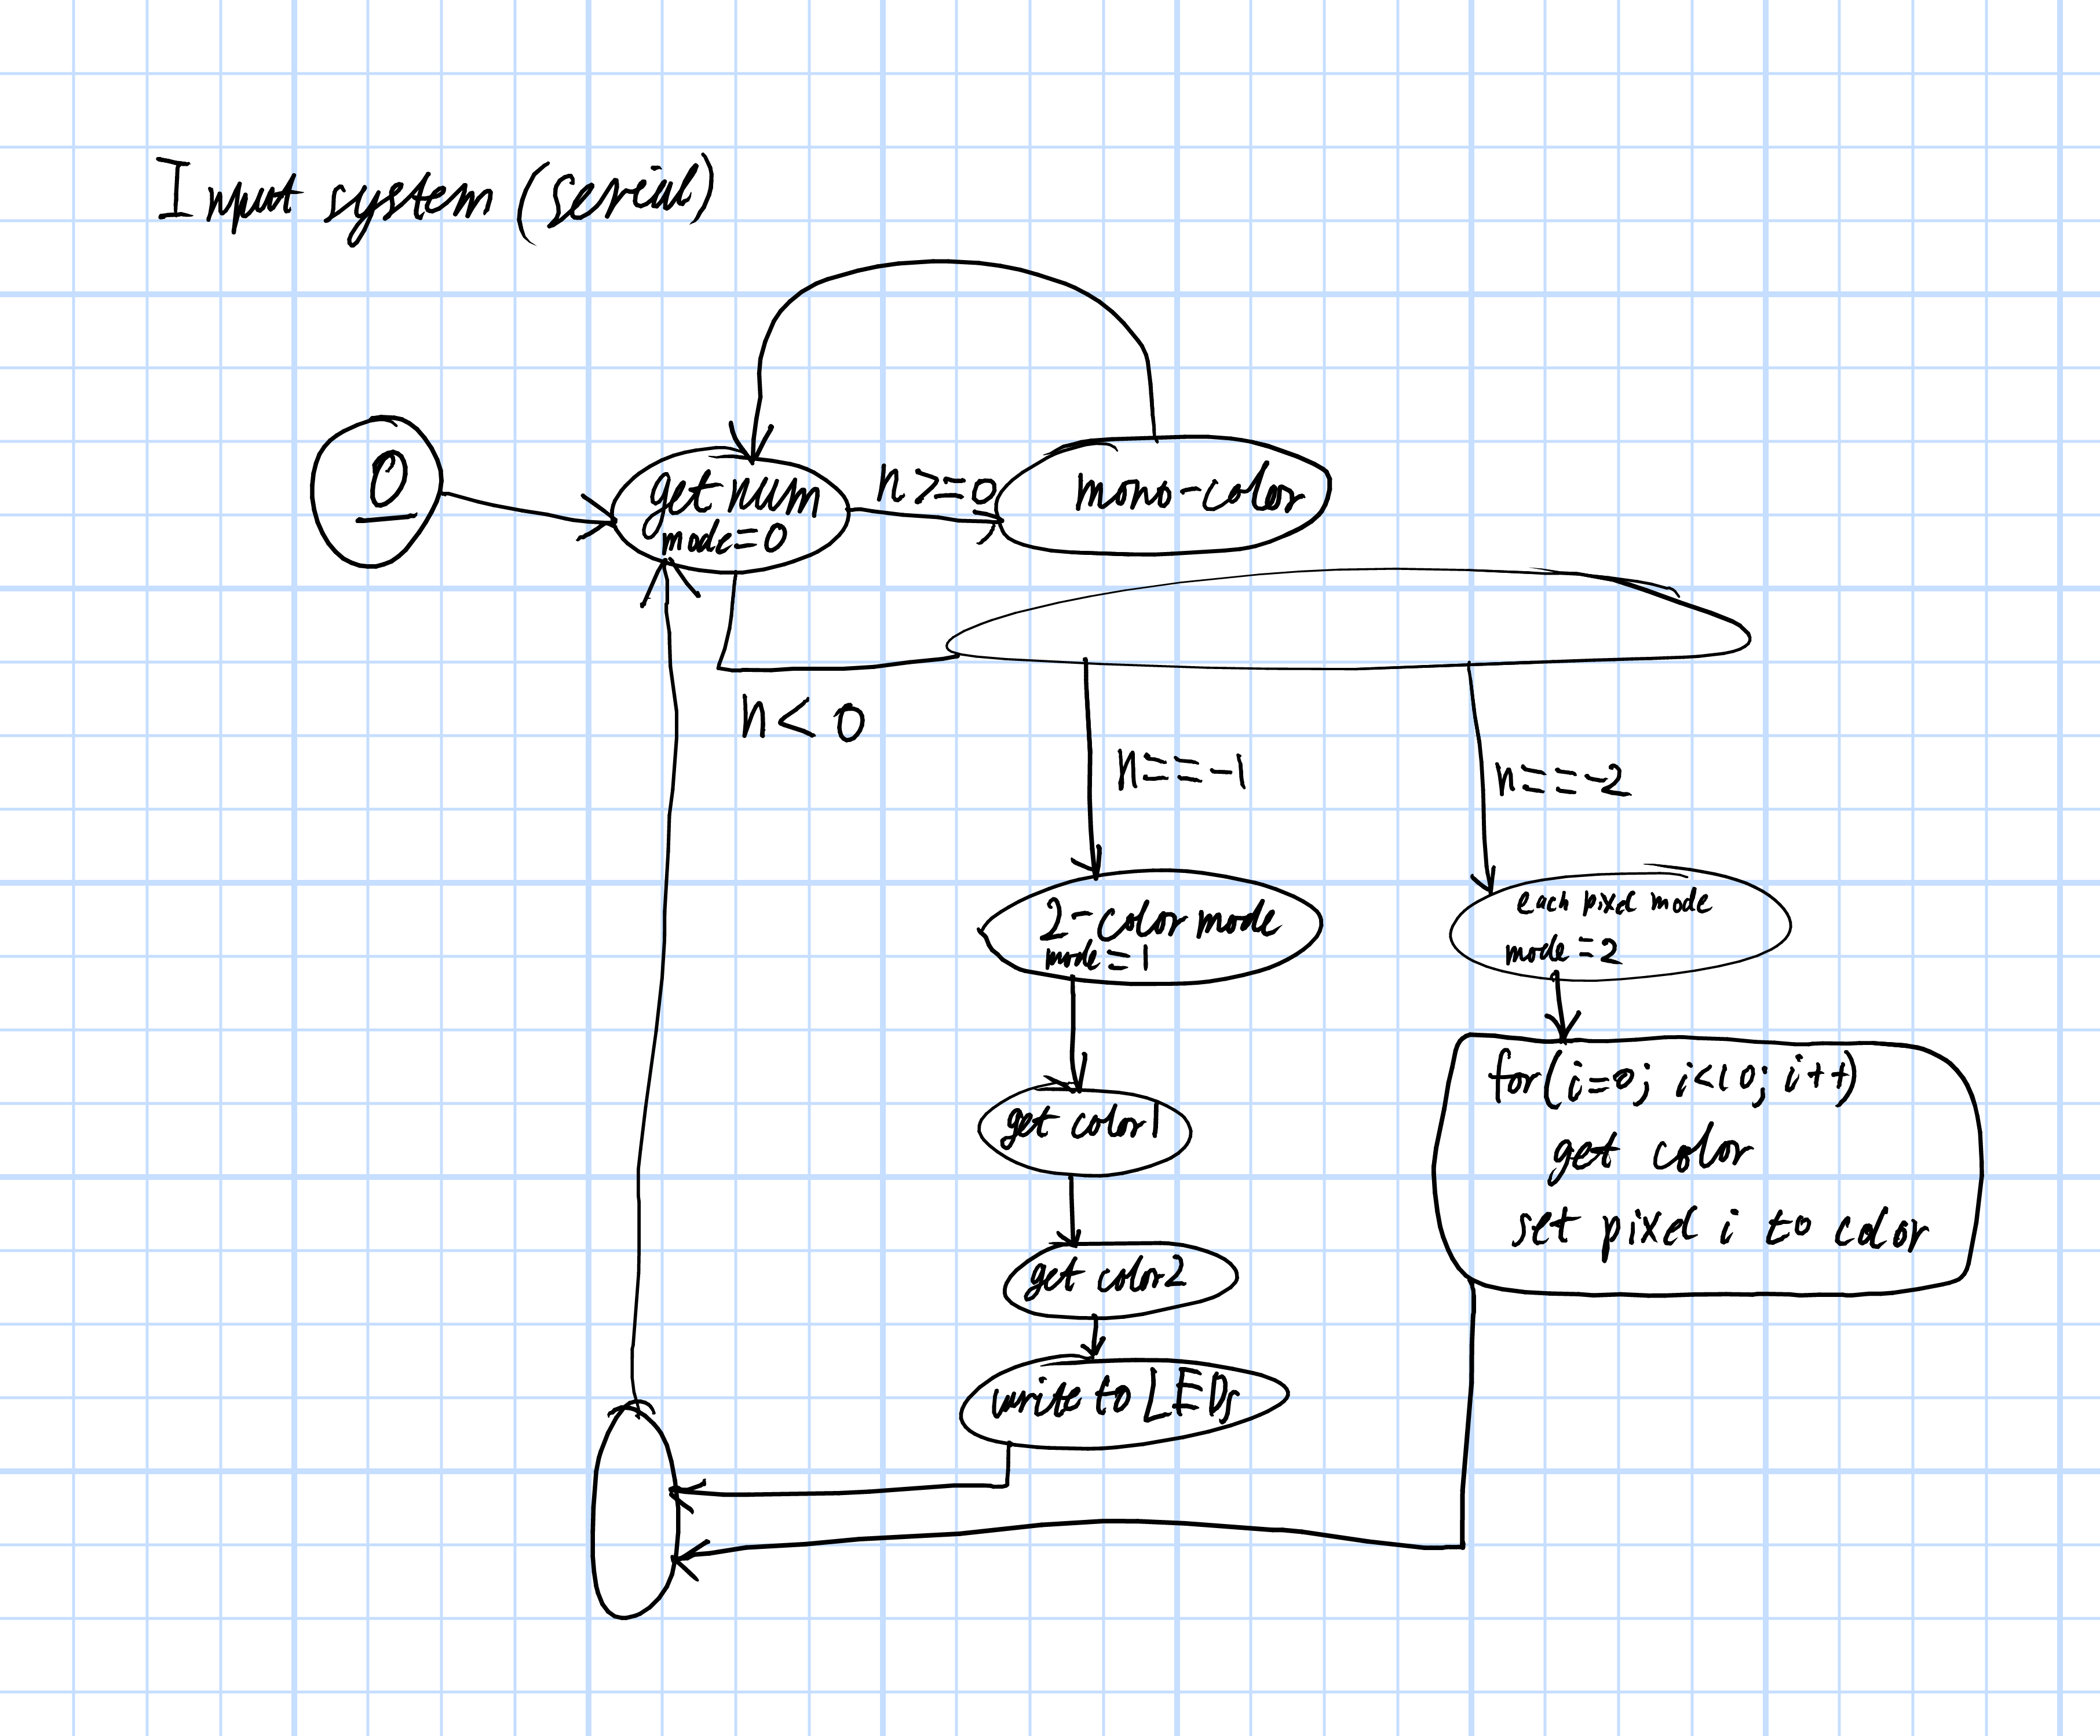 Input system (serial)
0
get num
mode=0
n>=0
mono-color
n<0
n==-1
n==-2
2-color mode
mode=1
each pixel mode
mode=2
get color1
get color2
write to LEDs
for(i=0; i<10; i++)
get color
set pixel i to color